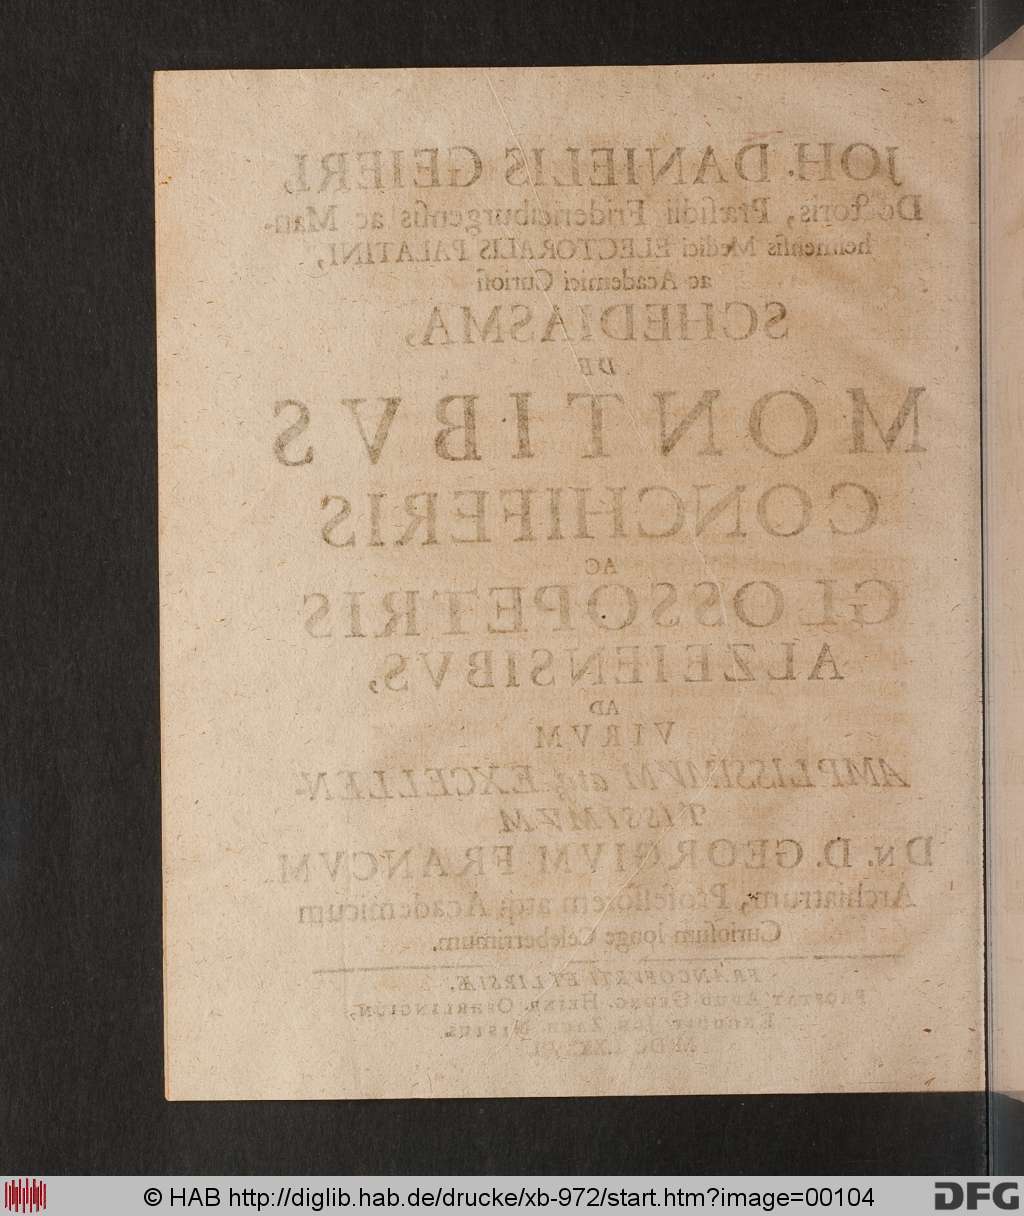 JOH. DANIELIS GEIERI,
Doctoris, Præsidii Fridericiburgensis ac Man-
hemensis Medici ELECTORALIS PALATINI,
ac Academici Curiosi
SCHEDIASMA,
DE
MONTIBVS
CONCHIFERIS
AC
GLOSSOPETRIS
ALZEIENSIBVS,
AD
VIRVM
AMPLISSIMVM atq; EXCELLEN-
TISSIMVM
DN. D. GEORGIVM FRANCVM
Archiatrum, Professorem atq; Academicum
Curiosum longe Celeberrimum.
FRANCOFVRTI ET LIPSIÆ,
PROSTAT APUD GEORG. HEINR. OEHRLINGIUM,
JOH. ZACH. NISIUS.
© HAB http://diglib.hab.de/drucke/xb-972/start.htm?image=00104
DFG